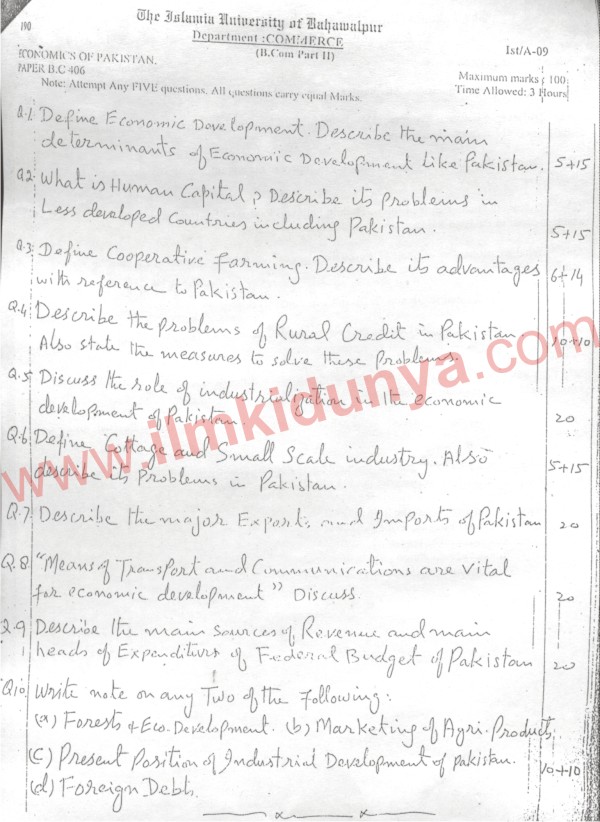 190
The Islamia University of Bahawalpur
Department :COMMERCE
(B.Com Part II)
1st/A-09
ECONOMICS OF PAKISTAN.
PAPER B.C 406
Maximum marks : 100
Time Allowed: 3 Hours
Note: Attempt Any FIVE questions. All questions carry equal Marks.
Q.1. Define Economic Development. Describe the main
determinants of Economic Development like Pakistan. 5+15
Q2. What is Human Capital? Describe its problems in
Less developed Countries including Pakistan. 5+15
Q.3. Define Cooperative farming. Describe its advantages 6+14
with reference to Pakistan.
Q.4. Describe the problems of Rural Credit in Pakistan
Also state the measures to solve these Problems. 10+10
Q.5 Discuss the role of industrialization in the economic
development of Pakistan. 20
Q.6. Define Cottage and Small Scale industry. Also 5+15
describe its Problems in Pakistan.
Q.7. Describe the major Exports and Imports of Pakistan 20
Q.8. "Means of Transport and Communications are vital
for economic development" Discuss. 20
Q.9 Describe the main sources of Revenue and main
heads of Expenditure of Federal Budget of Pakistan 20
Q10. Write note on any Two of the following:
(a) Forests & Eco. Development. (b) Marketing of Agri. Products.
(C) Present Position of Industrial Development of pakistan. 10+10
(d) Foreign Debts.
x x
www.ilmkidunya.com